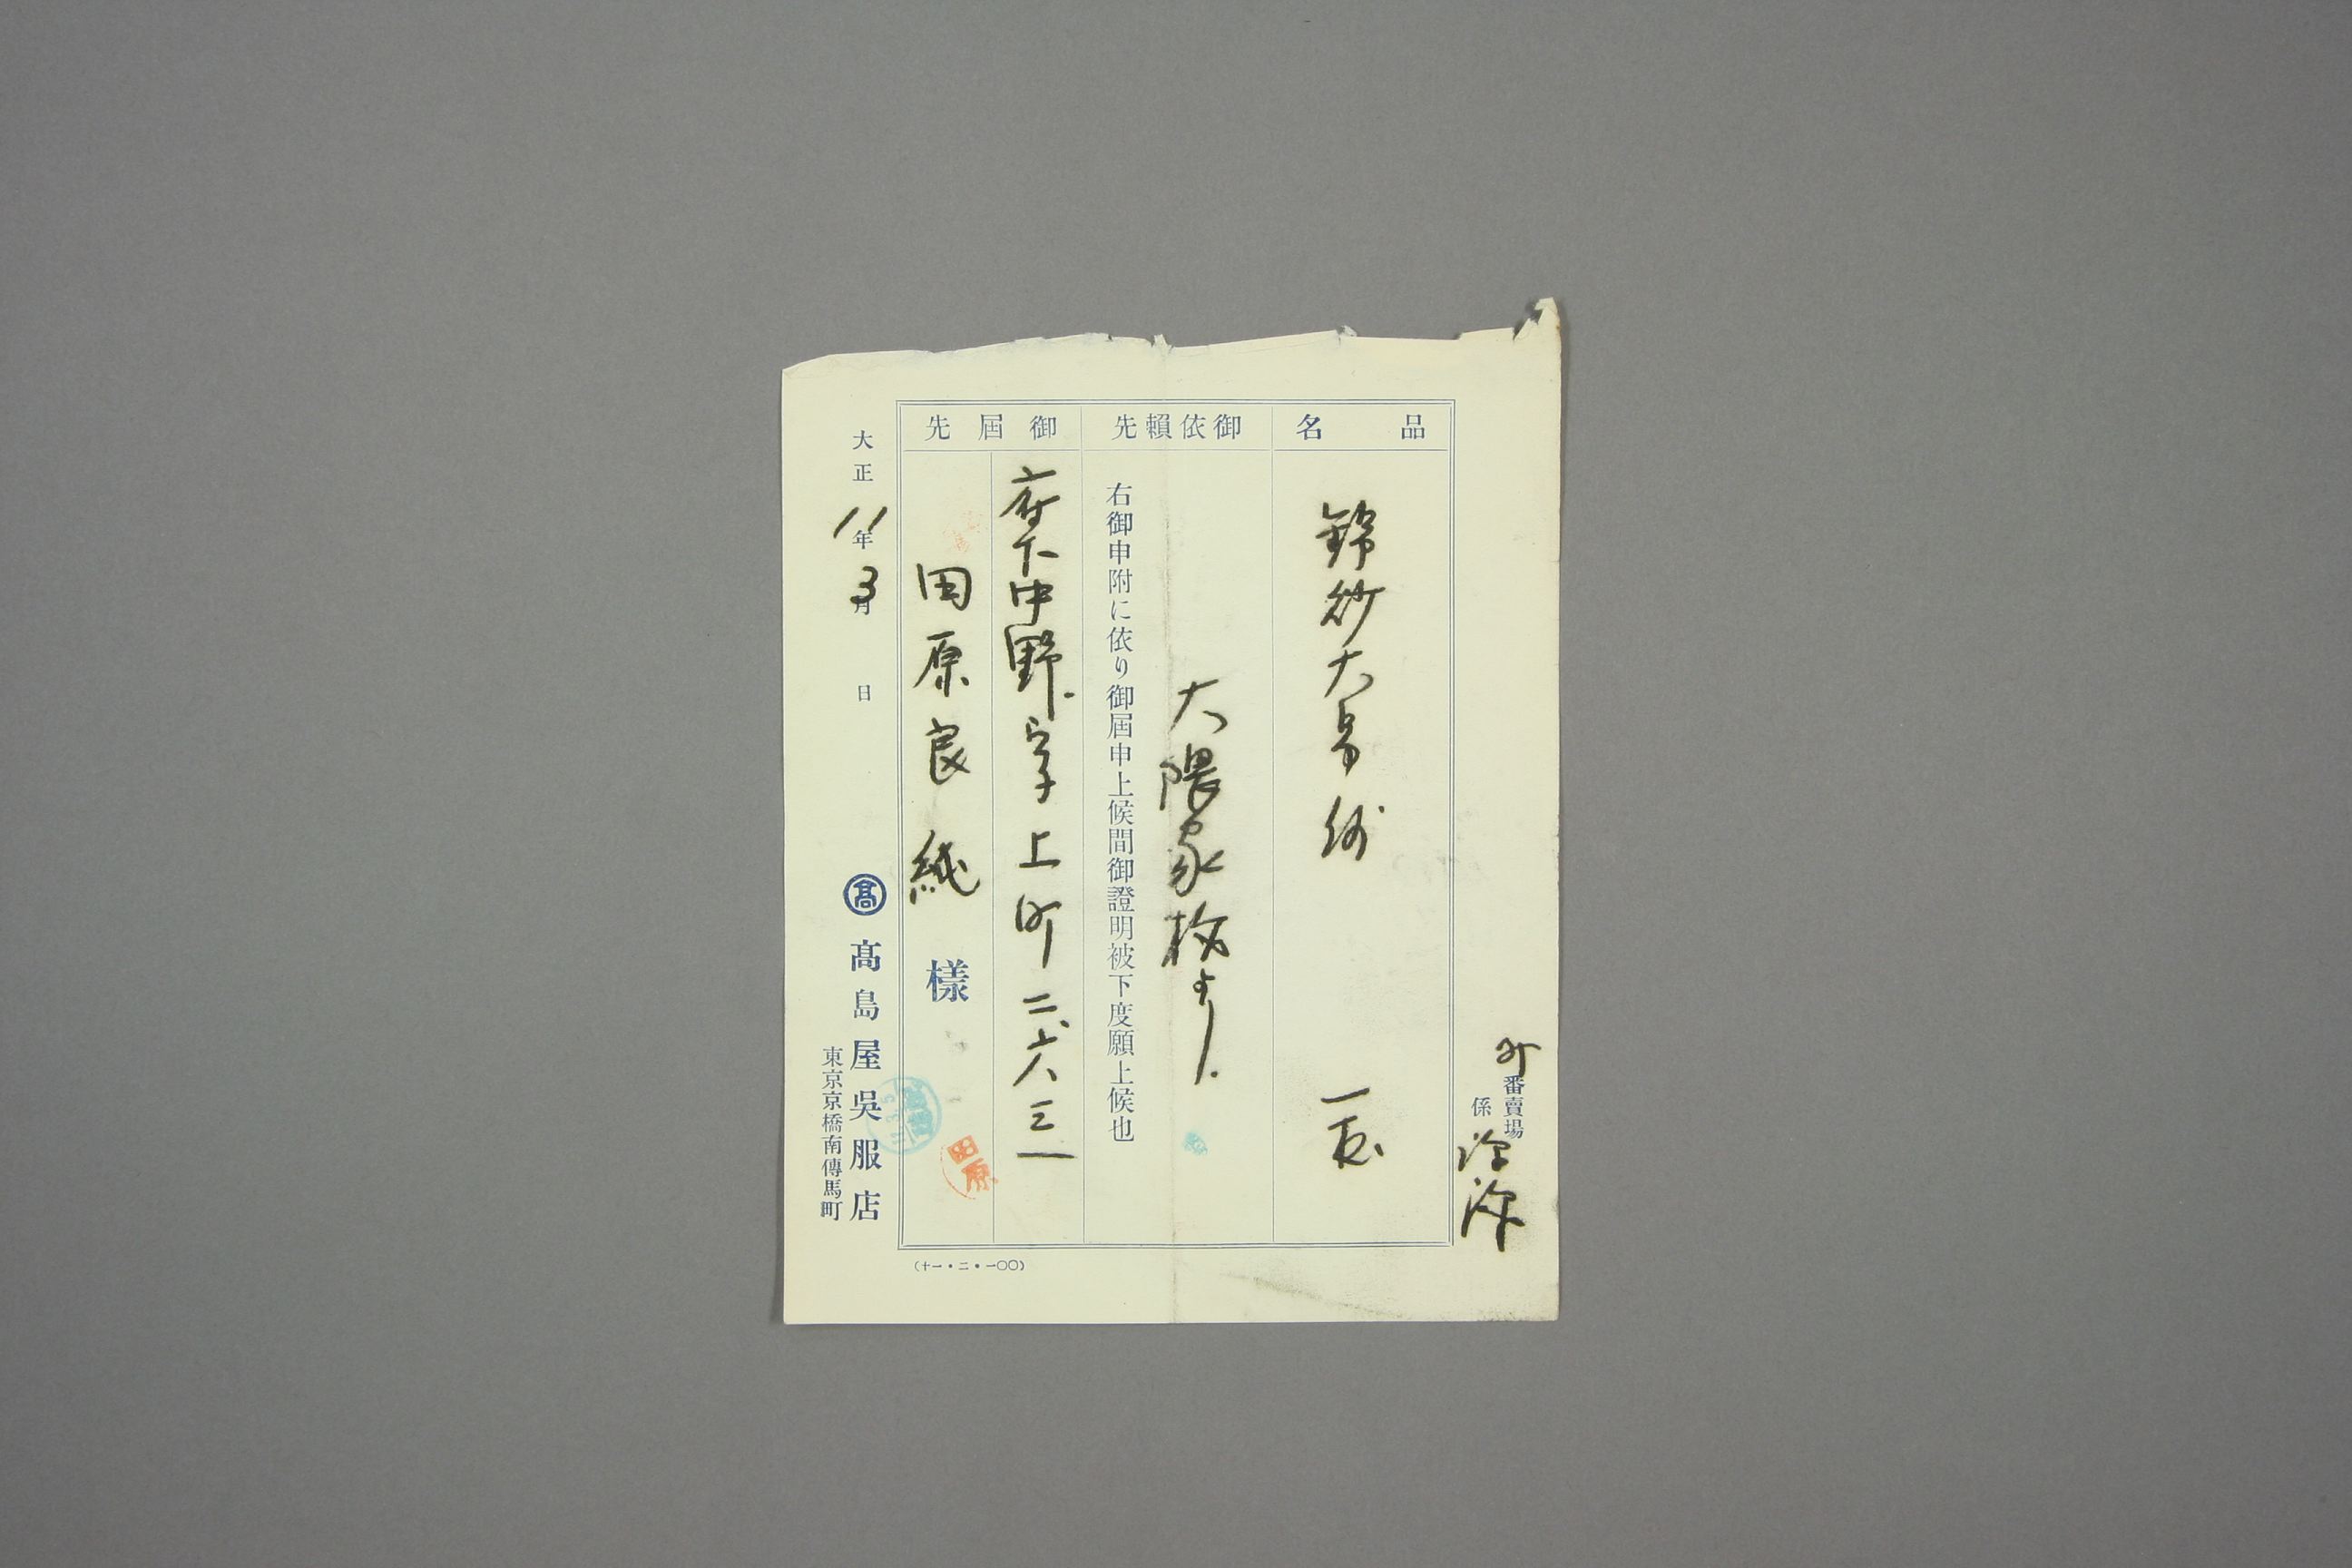 番賣場
係
品名
錦紗大
一
御依頼先
大隈家様より
右御申附に依り御屆申上候間御證明被下度願上候也
御屆先
府下中野字上町二六三一
田原良純様
大正11年3月 日
髙 髙島屋吳服店
東京京橋南傳馬町
田原
(十一・二・一〇〇)